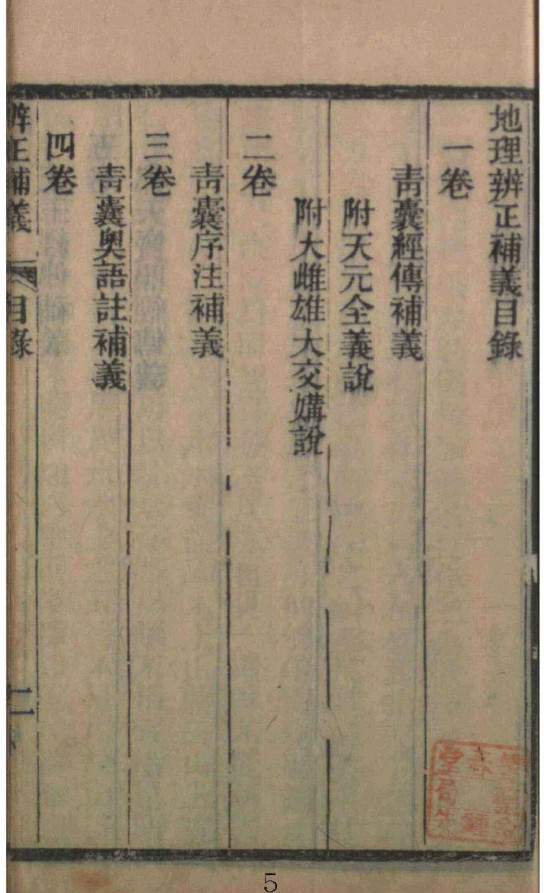 地理辨正補義目錄
一卷
青囊經傳補義
附天元全義說
附大雌雄大交媾說
二卷
青囊序注補義
三卷
青囊奥語註補義
四卷
辨正補義 目錄 一
5